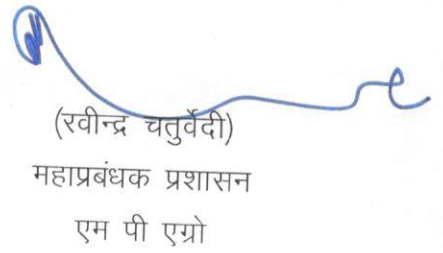 (रवीन्द्र चतुर्वेदी)
महाप्रबंधक प्रशासन
एम पी एग्रो